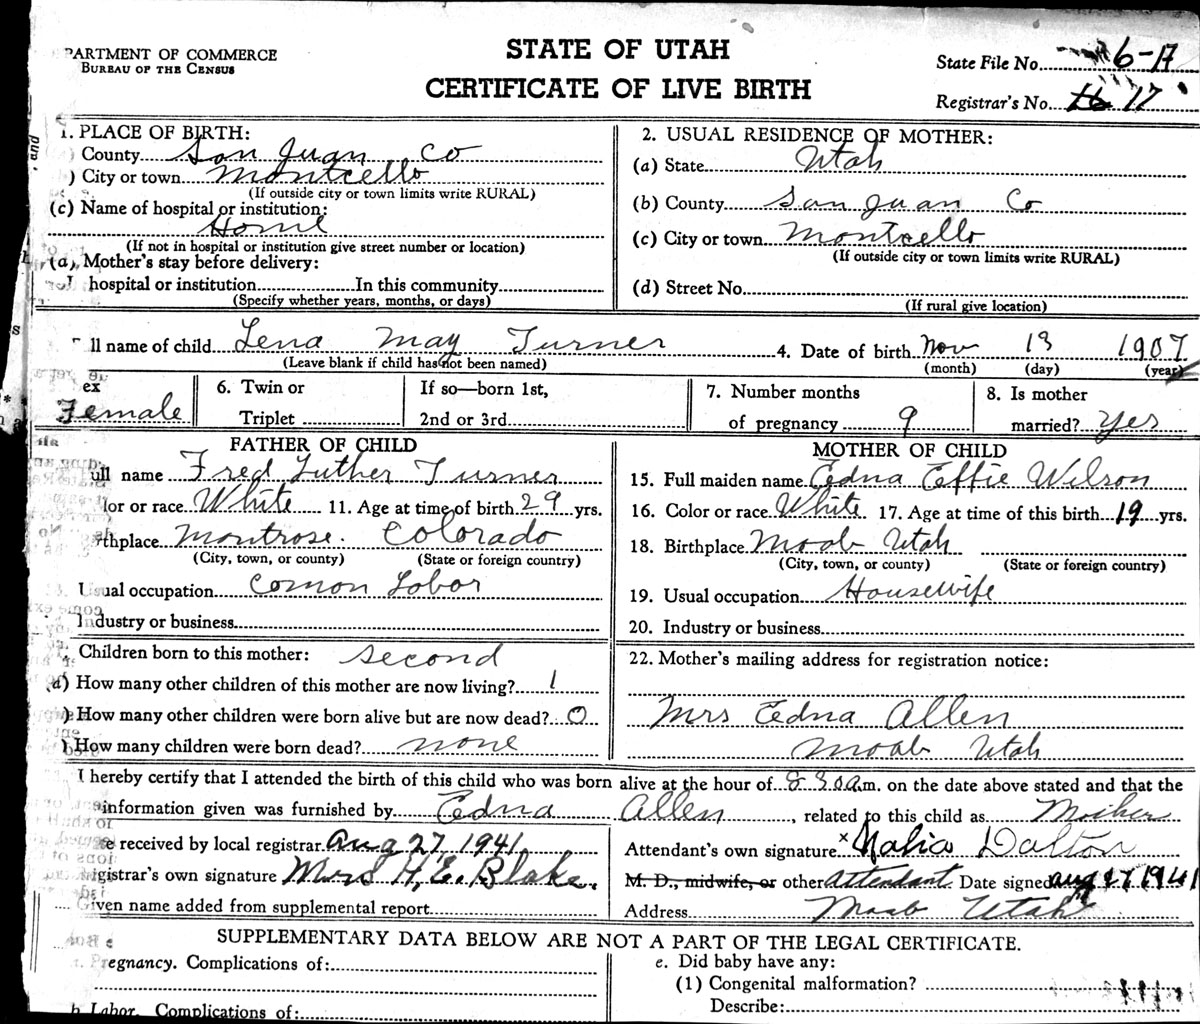 PARTMENT OF COMMERCE
BUREAU OF THE CENSUS
STATE OF UTAH
CERTIFICATE OF LIVE BIRTH
State File No. 6-17
Registrar's No. 17
1. PLACE OF BIRTH:
) County San Juan Co
) City or town Monticello
(If outside city or town limits write RURAL)
(c) Name of hospital or institution:
Home
(If not in hospital or institution give street number or location)
(d) Mother's stay before delivery:
hospital or institution In this community
(Specify whether years, months, or days)
2. USUAL RESIDENCE OF MOTHER:
(a) State Utah
(b) County San Juan Co
(c) City or town Montcello
(If outside city or town limits write RURAL)
(d) Street No.
(If rural give location)
ll name of child Lena May Turner
(Leave blank if child has not been named)
4. Date of birth Nov 13 1907
(month) (day) (year)
ex
Female
6. Twin or
Triplet
If so—born 1st,
2nd or 3rd
7. Number months
of pregnancy 9
8. Is mother
married? Yes
FATHER OF CHILD
ull name Fred Luther Turner
lor or race White 11. Age at time of birth 29 yrs.
rthplace Montrose. Colorado
(City, town, or county) (State or foreign country)
Usual occupation Comon Labor
Industry or business
MOTHER OF CHILD
15. Full maiden name Edna Effie Wilson
16. Color or race White 17. Age at time of this birth 19 yrs.
18. Birthplace Moab Utah
(City, town, or county) (State or foreign country)
19. Usual occupation Housewife
20. Industry or business
Children born to this mother: second
(a) How many other children of this mother are now living? 1
) How many other children were born alive but are now dead? 0
) How many children were born dead? none
22. Mother's mailing address for registration notice:
Mrs Edna Allen
Moab Utah
I hereby certify that I attended the birth of this child who was born alive at the hour of 8 30 a.m. on the date above stated and that the
information given was furnished by Edna Allen, related to this child as Mother
te received by local registrar Aug 27, 1941
gistrar's own signature Mrs H. E. Blake.
Given name added from supplemental report
Attendant's own signature x Dalton
M. D., midwife, or other Attendant Date signed Aug 27 1941
Address Moab Utah
SUPPLEMENTARY DATA BELOW ARE NOT A PART OF THE LEGAL CERTIFICATE.
Pregnancy. Complications of:
b Labor. Complications of:
e. Did baby have any:
(1) Congenital malformation?
Describe: